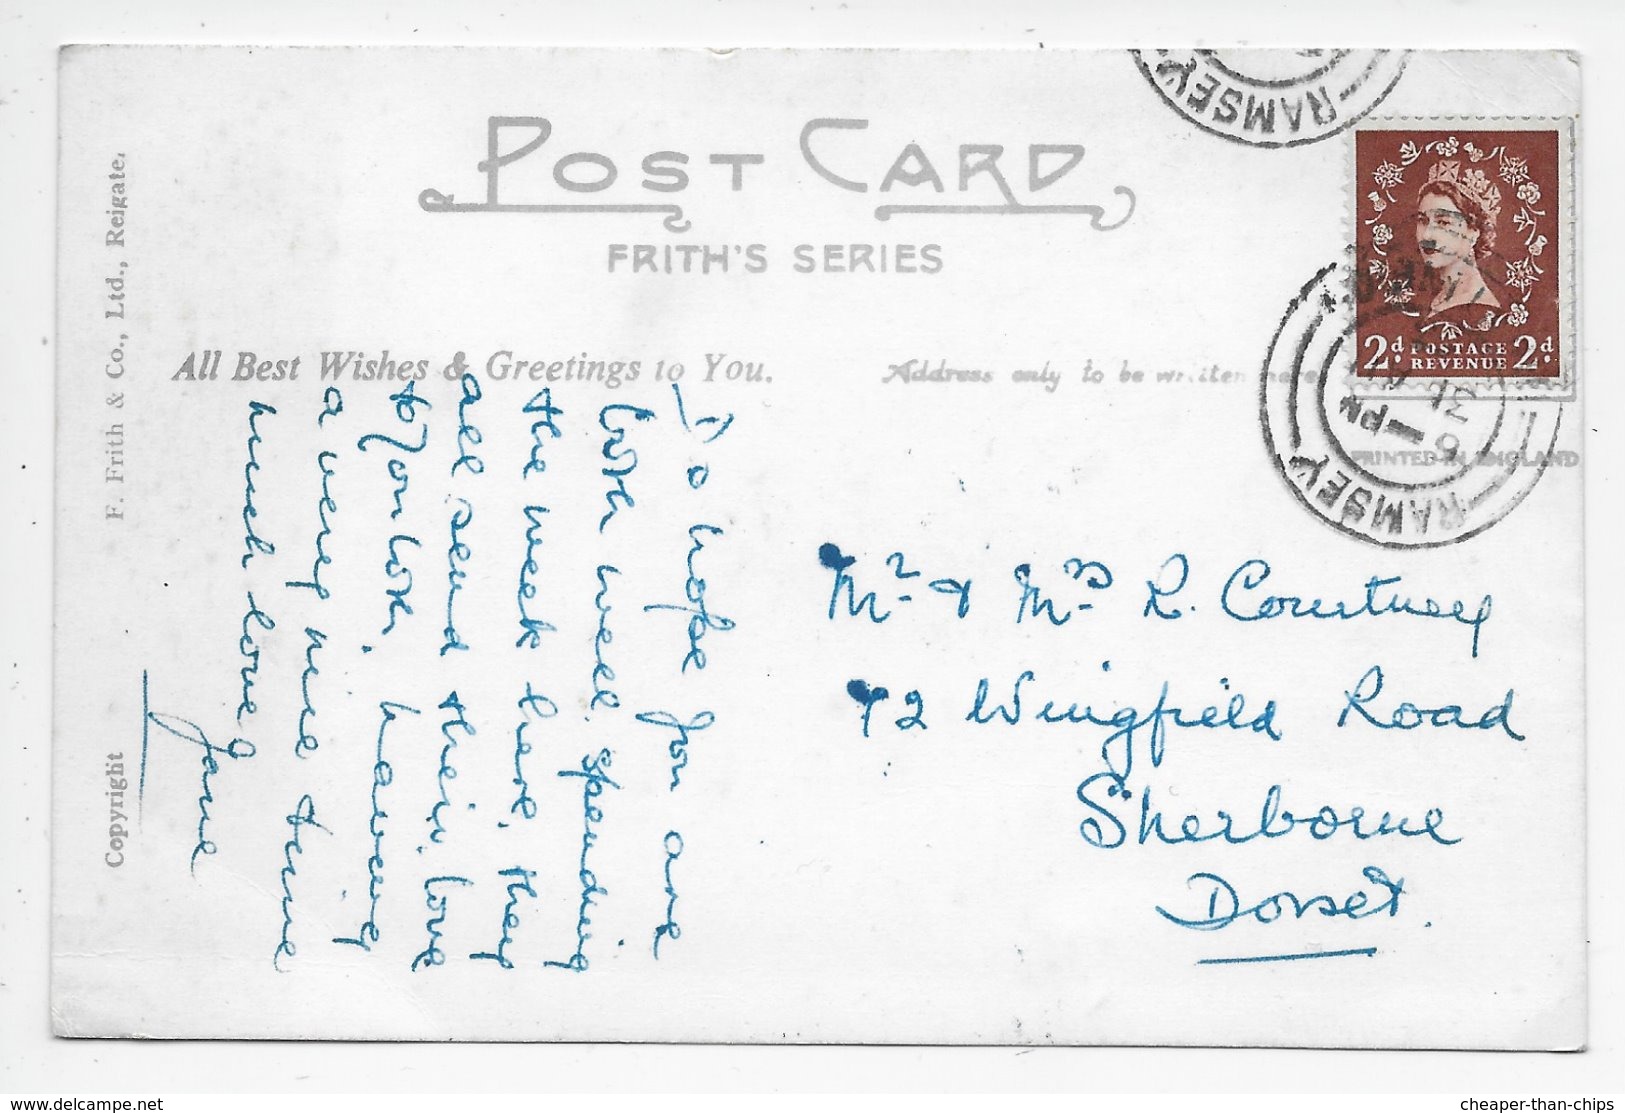 POST CARD
FRITH'S SERIES
All Best Wishes & Greetings to You.
Address only to be written here
PRINTED IN ENGLAND
F. Frith & Co., Ltd., Reigate.
Copyright
RAMSEY
RAMSEY
6 - PM
31
2d POSTAGE REVENUE 2d
Do hope you are
both well. spending
the week here. they
all send their love
to you both. having
a very nice time
much love
Jane
Mr & Mrs R. Courtney
72 Wingfield Road
Sherborne
Dorset.
delcampe.net
cheaper-than-chips